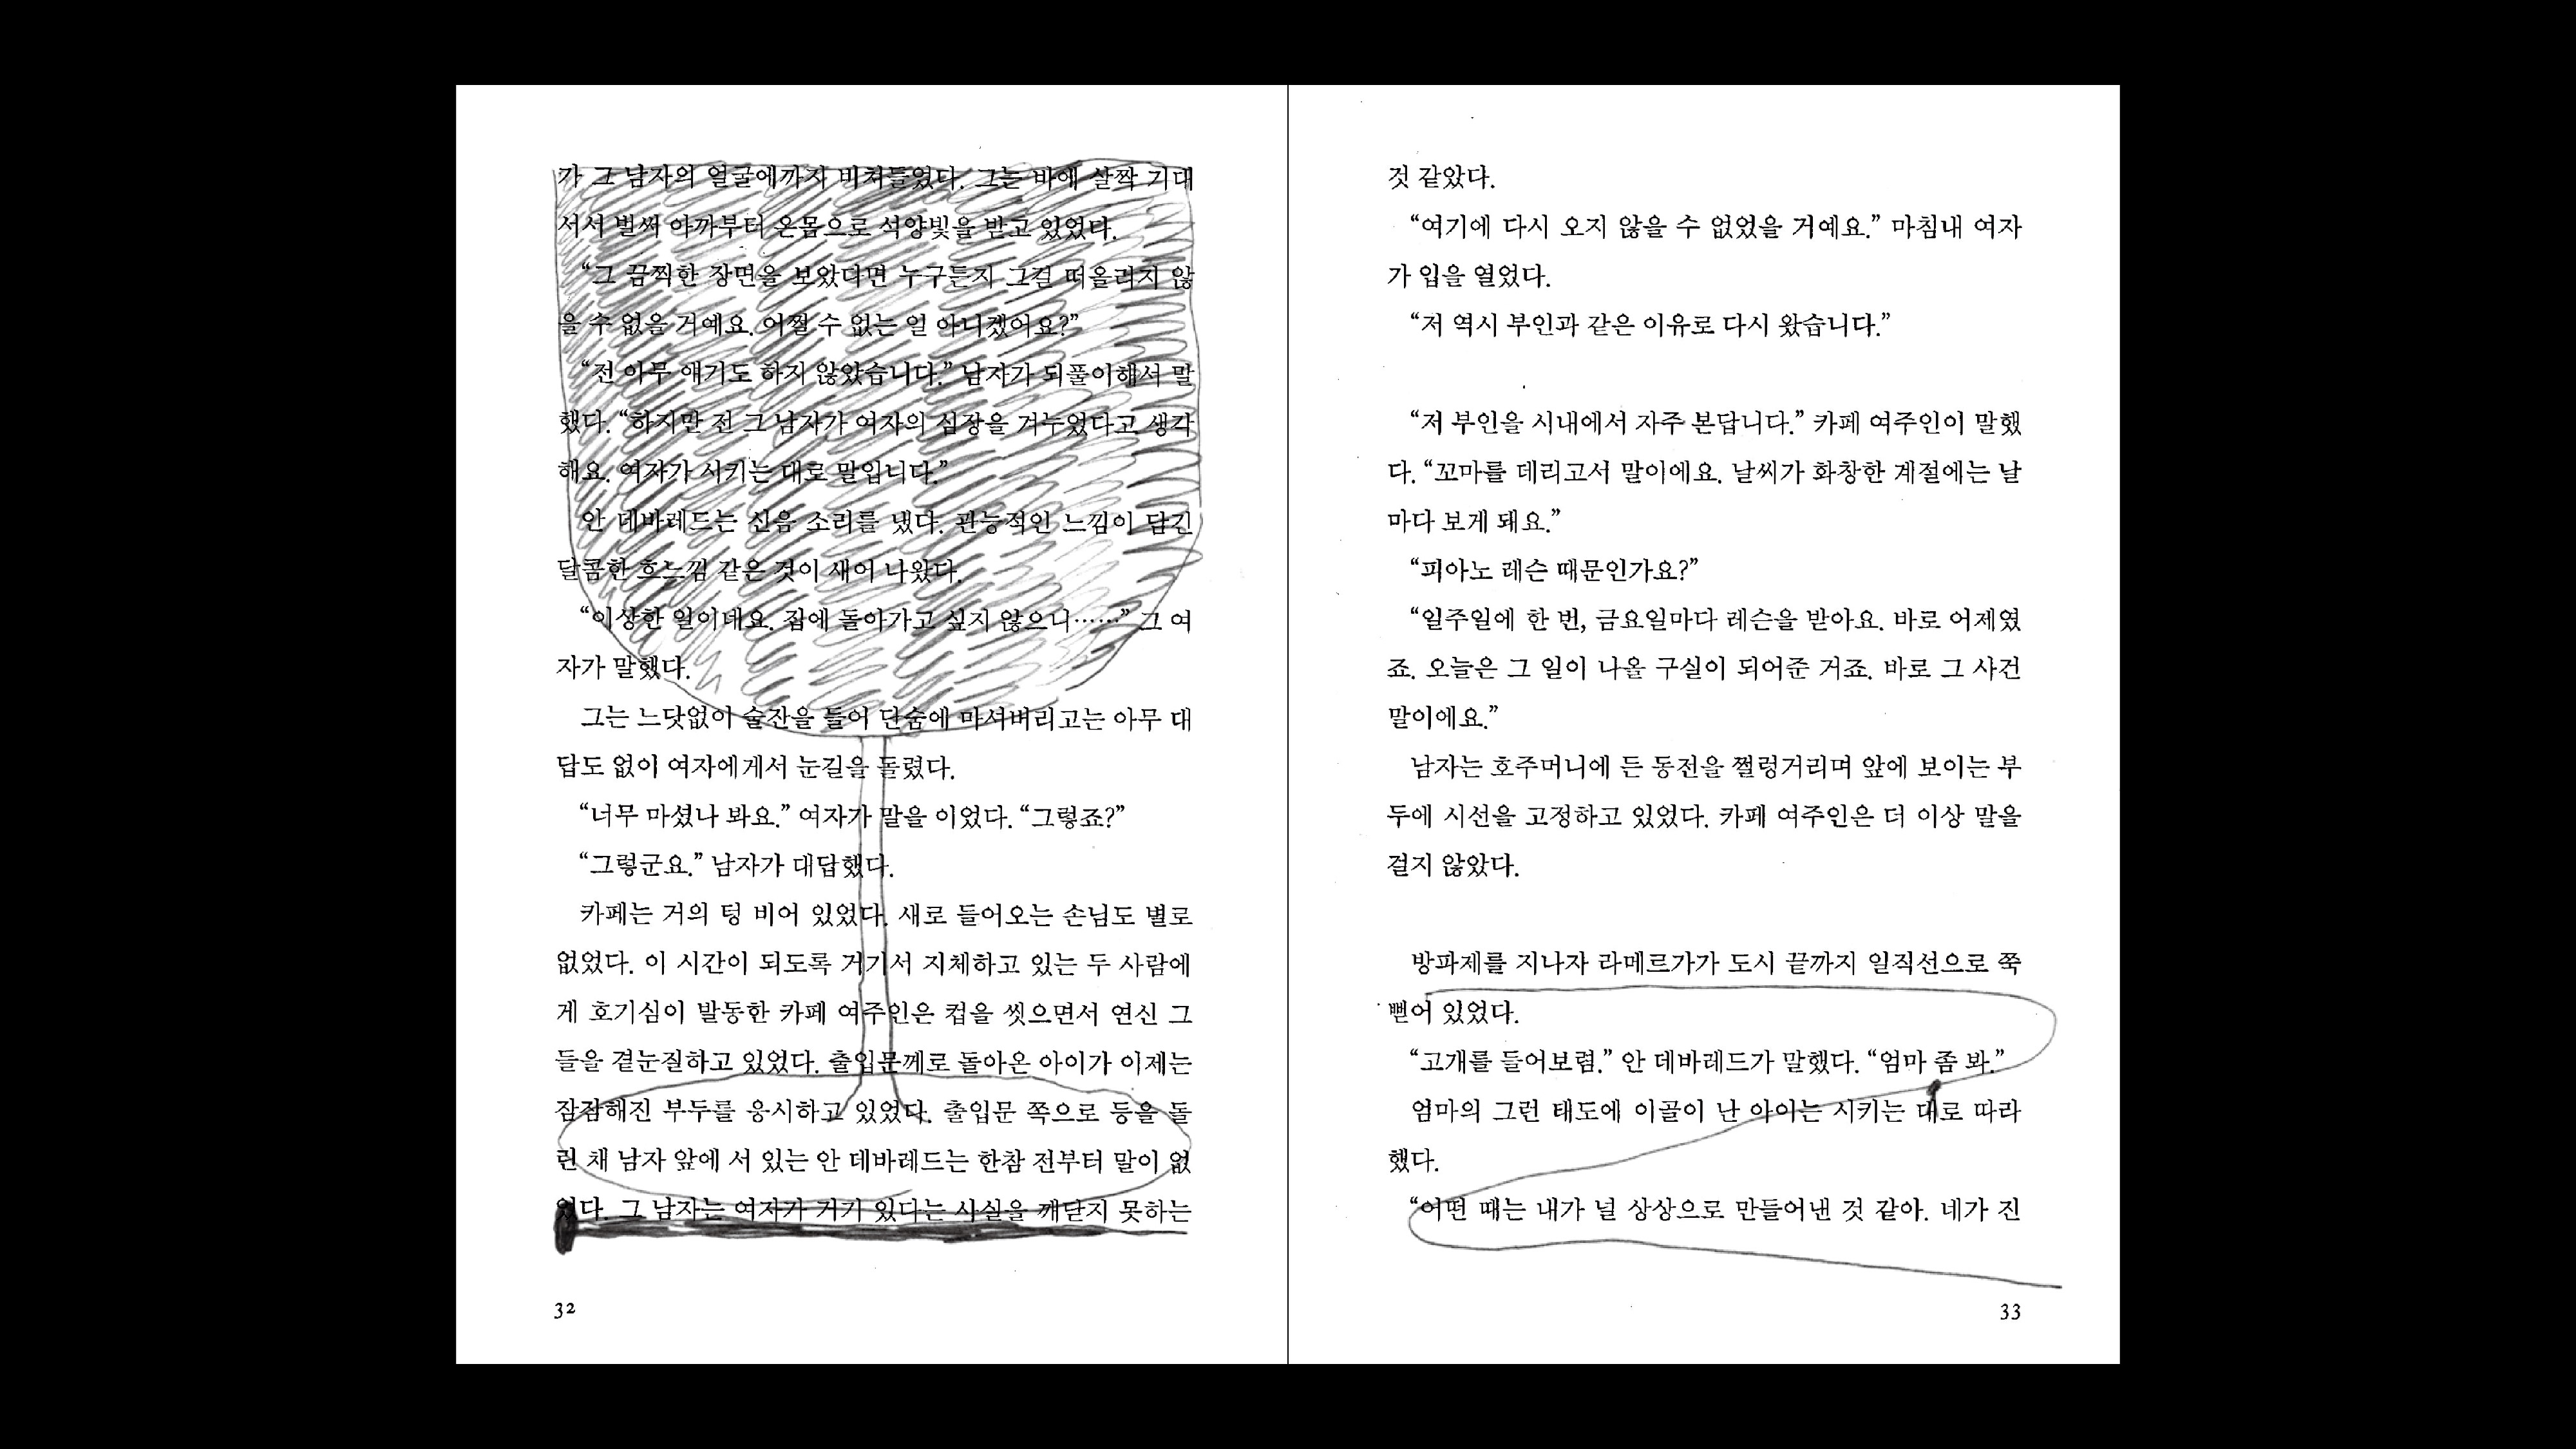 가 그 남자의 얼굴에까지 비쳐들었다. 그는 바에 살짝 기대
서서 벌써 아까부터 온몸으로 석양빛을 받고 있었다.
“그 끔찍한 장면을 보았다면 누구든지 그걸 떠올리지 않
을 수 없을 거예요. 어쩔 수 없는 일 아니겠어요?”
“전 아무 얘기도 하지 않았습니다.” 남자가 되풀이해서 말
했다. “하지만 전 그 남자가 여자의 심장을 겨누었다고 생각
해요. 여자가 시키는 대로 말입니다.”
안 데바레드는 신음 소리를 냈다. 관능적인 느낌이 담긴
달콤한 흐느낌 같은 것이 새어 나왔다.
“이상한 일이네요. 집에 돌아가고 싶지 않으니……” 그 여
자가 말했다.
그는 느닷없이 술잔을 들어 단숨에 마셔버리고는 아무 대
답도 없이 여자에게서 눈길을 돌렸다.
“너무 마셨나 봐요.” 여자가 말을 이었다. “그렇죠?”
“그렇군요.” 남자가 대답했다.
카페는 거의 텅 비어 있었다. 새로 들어오는 손님도 별로
없었다. 이 시간이 되도록 거기서 지체하고 있는 두 사람에
게 호기심이 발동한 카페 여주인은 컵을 씻으면서 연신 그
들을 곁눈질하고 있었다. 출입문께로 돌아온 아이가 이제는
잠잠해진 부두를 응시하고 있었다. 출입문 쪽으로 등을 돌
린 채 남자 앞에 서 있는 안 데바레드는 한참 전부터 말이 없
었다. 그 남자는 여자가 거기 있다는 사실을 깨닫지 못하는
32
것 같았다.
“여기에 다시 오지 않을 수 없었을 거예요.” 마침내 여자
가 입을 열었다.
“저 역시 부인과 같은 이유로 다시 왔습니다.”
“저 부인을 시내에서 자주 본답니다.” 카페 여주인이 말했
다. “꼬마를 데리고서 말이에요. 날씨가 화창한 계절에는 날
마다 보게 돼요.”
“피아노 레슨 때문인가요?”
“일주일에 한 번, 금요일마다 레슨을 받아요. 바로 어제였
죠. 오늘은 그 일이 나올 구실이 되어준 거죠. 바로 그 사건
말이에요.”
남자는 호주머니에 든 동전을 쩔렁거리며 앞에 보이는 부
두에 시선을 고정하고 있었다. 카페 여주인은 더 이상 말을
걸지 않았다.
방파제를 지나자 라메르가가 도시 끝까지 일직선으로 쭉
뻗어 있었다.
“고개를 들어보렴.” 안 데바레드가 말했다. “엄마 좀 봐.”
엄마의 그런 태도에 이골이 난 아이는 시키는 대로 따라
했다.
“어떤 때는 내가 널 상상으로 만들어낸 것 같아. 네가 진
33